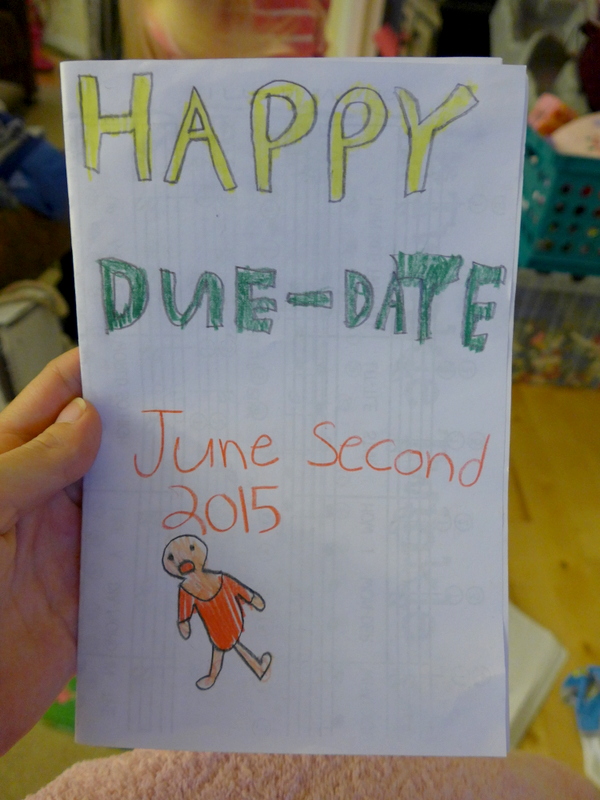 HAPPY
DUE-DATE
June Second
2015